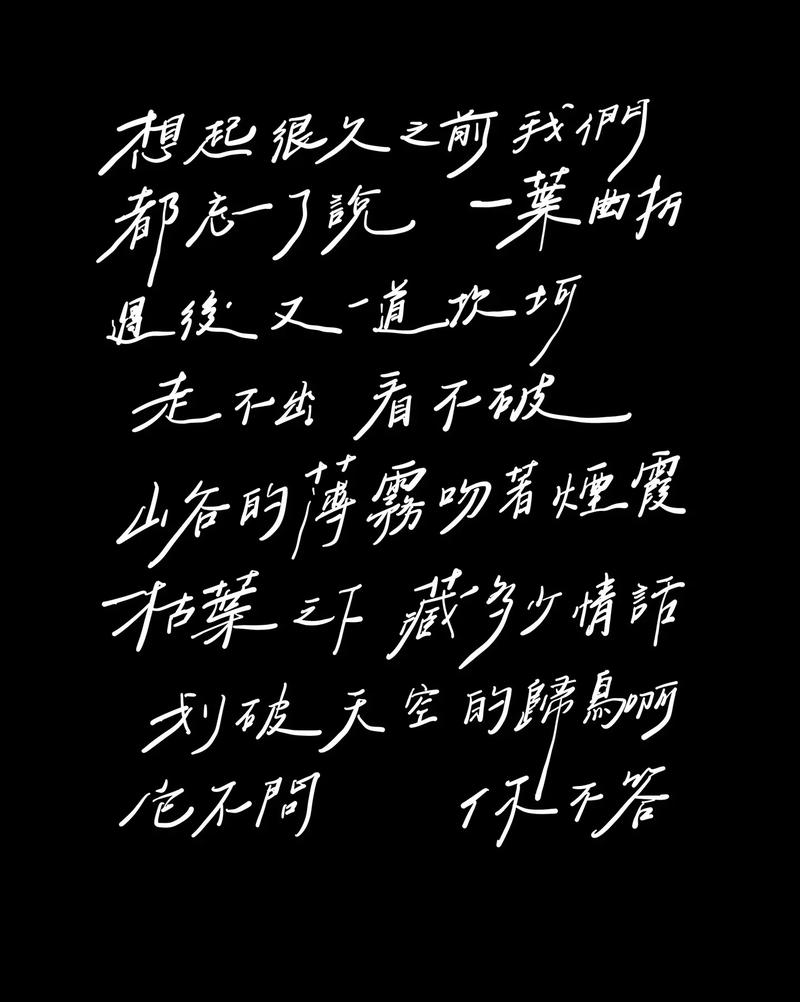 想起很久之前我們
都忘了說 一葉曲折
過後又一道坎坷
走不出 看不破
山谷的薄霧吻著煙霞
枯葉之下 藏多少情話
划破天空的歸鳥啊
它不問 你不答